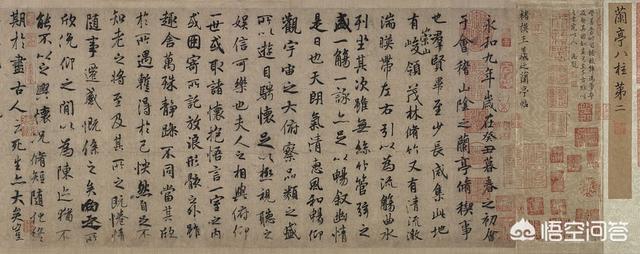 蘭亭八柱第二
褚模王羲之蘭亭帖
永和九年歲在癸丑暮春之初會
于會稽山陰之蘭亭脩稧事
也群賢畢至少長咸集此地
有崇山峻領茂林脩竹又有清流激
湍暎帶左右引以為流觴曲水
列坐其次雖無絲竹管弦之
盛一觴一詠亦足以暢敘幽情
是日也天朗氣清惠風和暢仰
觀宇宙之大俯察品類之盛
所以遊目騁懷足以極視聽之
娛信可樂也夫人之相與俯仰
一世或取諸懷抱悟言一室之內
或因寄所託放浪形骸之外雖
趣舍萬殊靜躁不同當其欣
於所遇暫得於己怏然自足不
知老之將至及其所之既惓情
隨事遷感慨係之矣向之所
欣俛仰之間以為陳迹猶不
能不以之興懷況脩短隨化終
期於盡古人云死生亦大矣豈
悟空问答